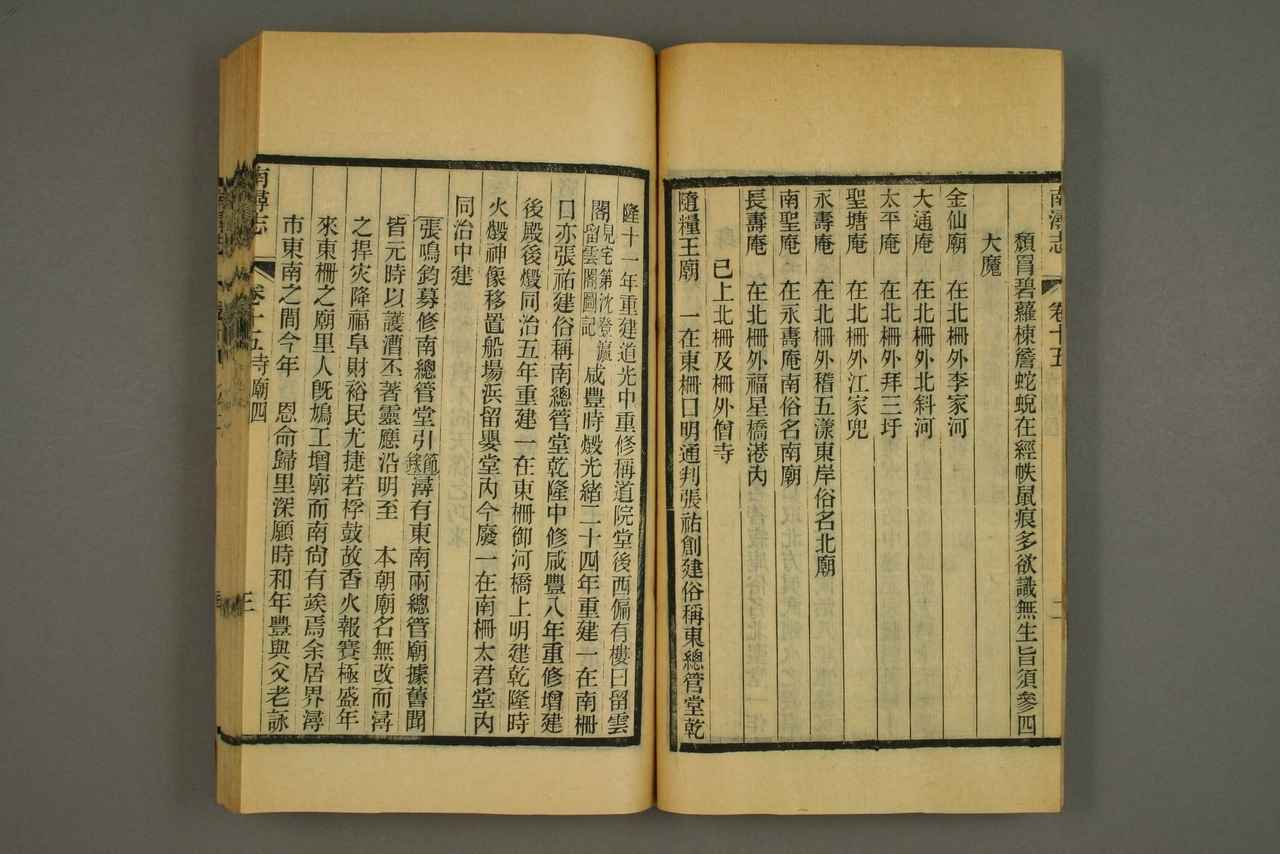 南潯志 卷十五 二
頽買碧蘿棟簷蛇蛻在經帙鼠痕多欲識無生旨須參四
大魔
金仙廟 在北柵外李家河
大通庵 在北柵外北斜河
太平庵 在北柵外拜三圩
聖塘庵 在北柵外江家兜
永壽庵 在北柵外稽五漾東岸俗名北廟
南聖庵 在永壽庵南俗名南廟
長壽庵 在北柵外福星橋港內
已上北柵及柵外僧寺
隨糧王廟 一在東柵口明通判張祐創建俗稱東總管堂乾
隆十一年重建道光中重修稱道院堂後西偏有樓曰留雲
閣見宅第沈登瀛
留雲閣圖記
咸豐時燬光緒二十四年重建一在南柵
口亦張祐建俗稱南總管堂乾隆中修咸豐八年重修增建
後殿後燬同治五年重建一在東柵御河橋上明建乾隆時
火燬神像移置船場浜留嬰堂內今廢一在南柵太君堂內
同治中建
張鳴鈞募修南總管堂引節錄潯有東南兩總管廟據舊聞
皆元時以護漕丕著靈應沿明至 本朝廟名無改而潯
之捍灾降福阜財裕民尤捷若桴鼓故香火報賽極盛年
來東柵之廟里人旣鳩工增廓而南尙有竢焉余居界潯
市東南之間今年 恩命歸里深願時和年豐與父老詠
南潯志 卷十五寺廟四 三